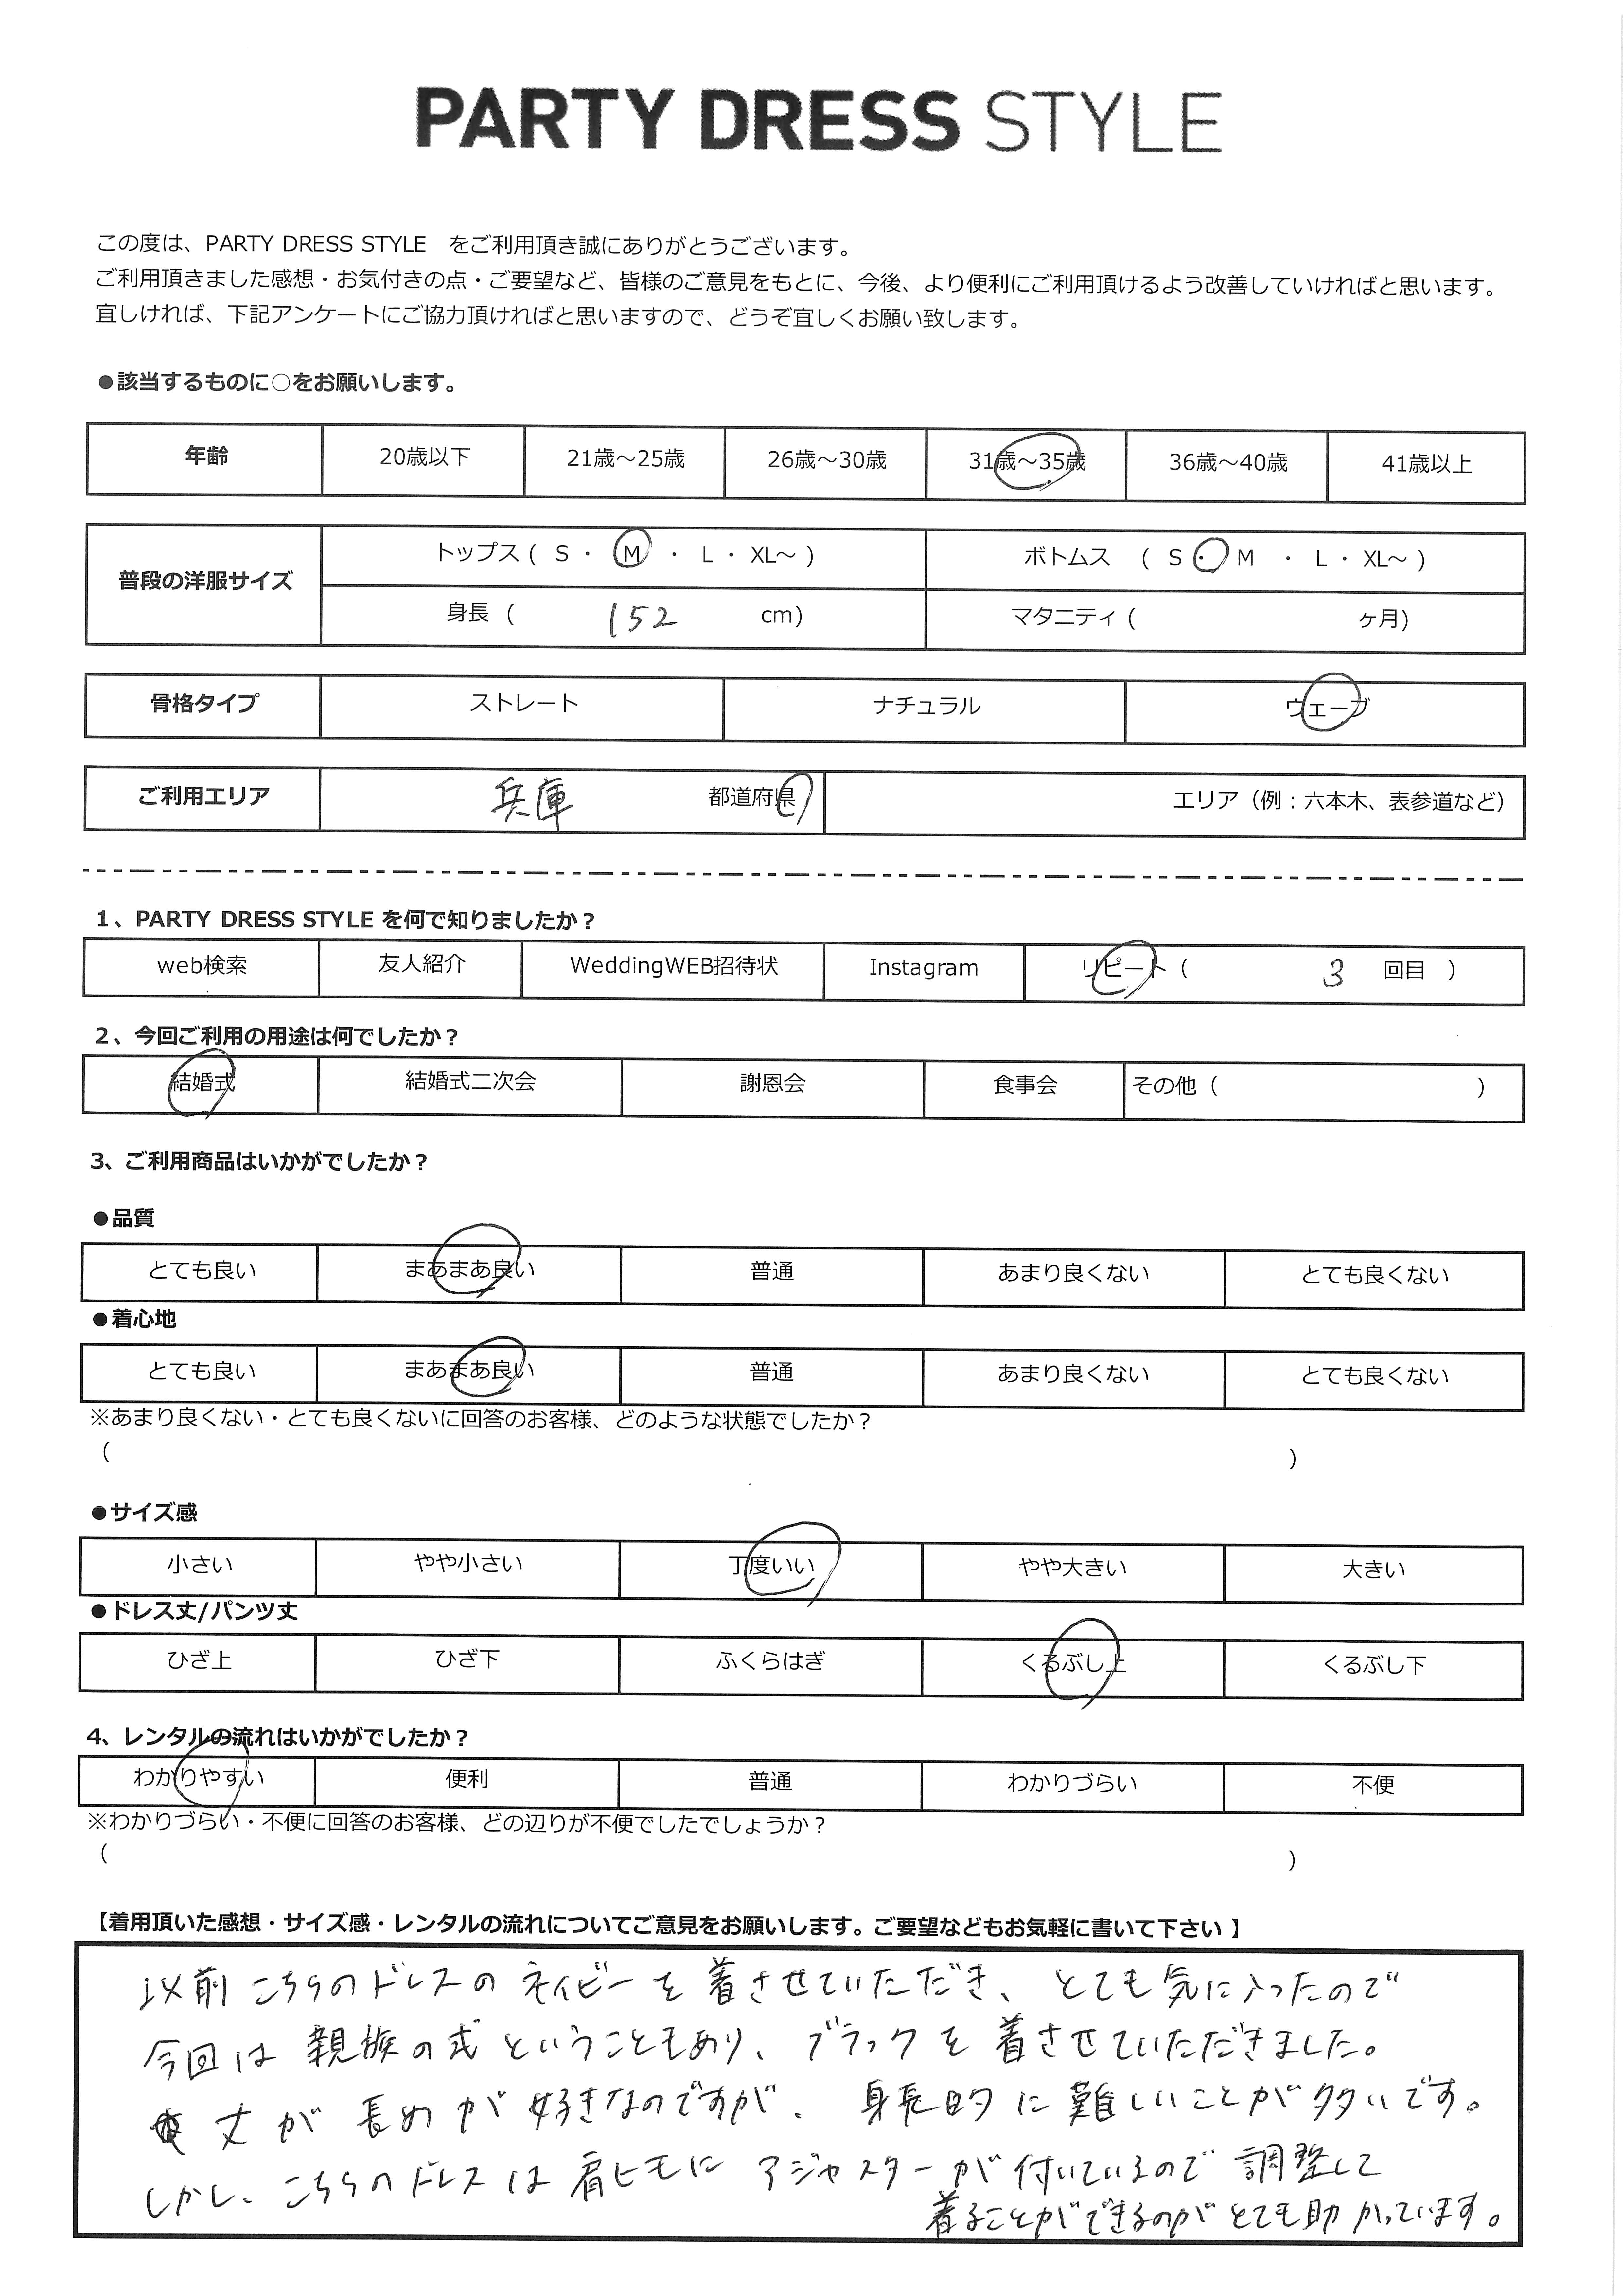 PARTY DRESS STYLE
この度は、PARTY DRESS STYLE　をご利用頂き誠にありがとうございます。
ご利用頂きました感想・お気付きの点・ご要望など、皆様のご意見をもとに、今後、より便利にご利用頂けるよう改善していければと思います。
宜しければ、下記アンケートにご協力頂ければと思いますので、どうぞ宜しくお願い致します。
●該当するものに○をお願いします。
年齢 20歳以下 21歳～25歳 26歳～30歳 31歳～35歳 36歳～40歳 41歳以上
普段の洋服サイズ トップス ( S ・ M ・ L ・ XL～ ) ボトムス ( S ・ M ・ L ・ XL～ )
身長 ( 152 cm) マタニティ ( ヶ月)
骨格タイプ ストレート ナチュラル ウェーブ
ご利用エリア 兵庫 都道府県 エリア（例：六本木、表参道など）
1、PARTY DRESS STYLE を何で知りましたか？
web検索 友人紹介 WeddingWEB招待状 Instagram リピート（ 3 回目 ）
2、今回ご利用の用途は何でしたか？
結婚式 結婚式二次会 謝恩会 食事会 その他（ ）
3、ご利用商品はいかがでしたか？
●品質
とても良い まあまあ良い 普通 あまり良くない とても良くない
●着心地
とても良い まあまあ良い 普通 あまり良くない とても良くない
※あまり良くない・とても良くないに回答のお客様、どのような状態でしたか？
( )
●サイズ感
小さい やや小さい 丁度いい やや大きい 大きい
●ドレス丈/パンツ丈
ひざ上 ひざ下 ふくらはぎ くるぶし上 くるぶし下
4、レンタルの流れはいかがでしたか？
わかりやすい 便利 普通 わかりづらい 不便
※わかりづらい・不便に回答のお客様、どの辺りが不便でしたでしょうか？
( )
【着用頂いた感想・サイズ感・レンタルの流れについてご意見をお願いします。ご要望などもお気軽に書いて下さい 】
以前こちらのドレスのネイビーを着させていただき、とても気に入ったので
今回は親族の式ということもあり、ブラックを着させていただきました。
丈が長めが好きなのですが、身長的に難しいことが多いです。
しかし、こちらのドレスは肩ヒモにアジャスターが付いているので調整して
着ることができるのがとても助かっています。